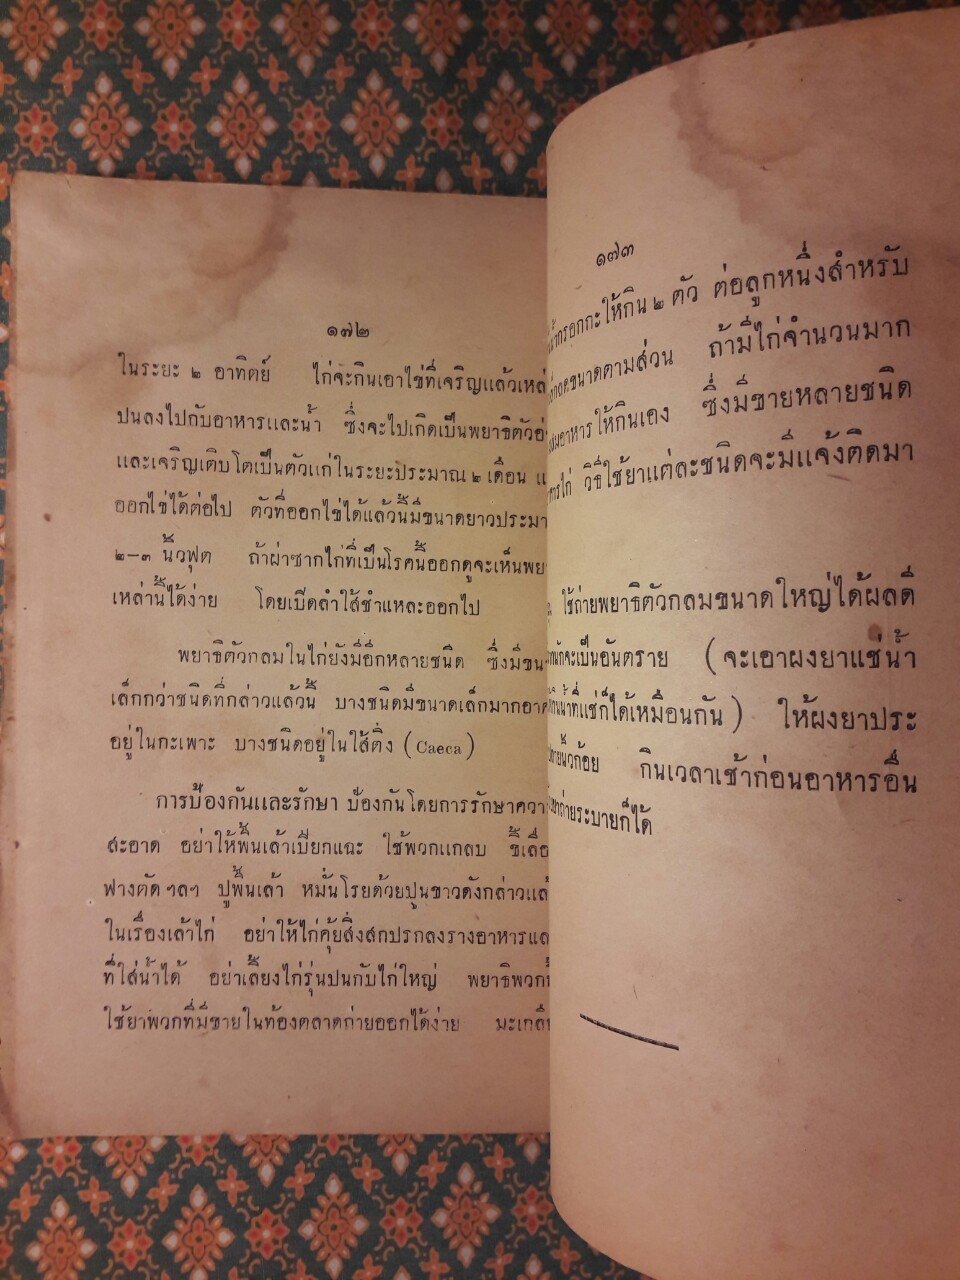 ๑๗๒
ในระยะ ๒ อาทิตย์ ไก่จะกินเอาไข่ที่เจริญแล้วเหล่
ปนลงไปกับอาหารและน้ำ ซึ่งจะไปเกิดเป็นพยาธิตัวอ่
และเจริญเติบโตเป็นตัวแก่ในระยะประมาณ ๒ เดือน แ
ออกไข่ได้ต่อไป ตัวที่ออกไข่ได้แล้วนี้มีขนาดยาวประมา
๒–๓ นิ้วฟุต ถ้าผ่าซากไก่ที่เป็นโรคนี้ออกดูจะเห็นพย
เหล่านี้ได้ง่าย โดยเปิดลำใส้ชำแหละออกไป
พยาธิตัวกลมในไก่ยังมีอีกหลายชนิด ซึ่งมีขน
เล็กกว่าชนิดที่กล่าวแล้วนี้ บางชนิดมีขนาดเล็กมากอา
อยู่ในกะเพาะ บางชนิดอยู่ในใส้ติ่ง (Caeca)
การป้องกันและรักษา ป้องกันโดยการรักษาควา
สะอาด อย่าให้พื้นเล้าเปียกแฉะ ใช้พวกแกลบ ขี้เลื่อ
ฟางตัด ฯลฯ ปูพื้นเล้า หมั่นโรยด้วยปูนขาวดังกล่าวแล้
ในเรื่องเล้าไก่ อย่าให้ไก่คุ้ยสิ่งสกปรกลงรางอาหารแล
ที่ใส่น้ำได้ อย่าเลี้ยงไก่รุ่นปนกับไก่ใหญ่ พยาธิพวก
ใช้ยาพวกที่มีขายในท้องตลาดถ่ายออกได้ง่าย มะเกลื
๑๗๓
น้ำกรอกกะให้กิน ๒ ตัว ต่อลูกหนึ่งสำหรับ
ลดขนาดตามส่วน ถ้ามีไก่จำนวนมาก
อาหารให้กินเอง ซึ่งมีขายหลายชนิด
ไก่ วิธีใช้ยาแต่ละชนิดจะมีแจ้งติดมา
ใช้ถ่ายพยาธิตัวกลมขนาดใหญ่ได้ผลดี
จะเป็นอันตราย (จะเอาผงยาแช่น้ำ
น้ำที่แช่ก็ได้เหมือนกัน) ให้ผงยาประ
นิ้วก้อย กินเวลาเช้าก่อนอาหารอื่น
ถ่ายระบายก็ได้